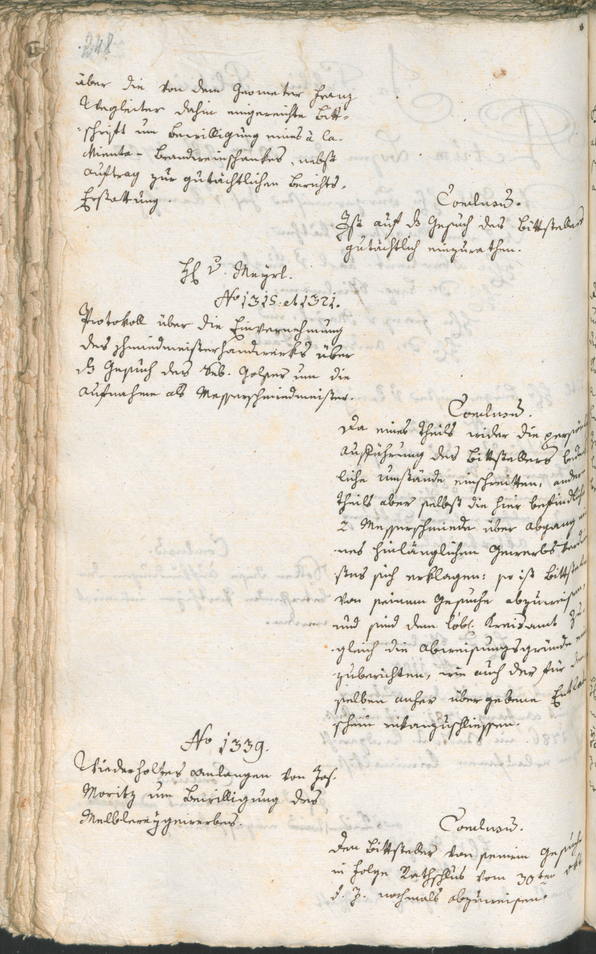 248
über die von dem Geometer Franz
Wegleiter dahin eingereichte Bitt-
schrift um Bewilligung eines à la
Minuta-Brandweinschankes, nebst
Auftrag zur gutächtlichen Berichts-
Erstattung.
Conclusum.
Ist auf das Gesuch des Bittstellers
gutächtlich einzurathen.
H. v. Mayrl.
No 1315. et 1321.
Protokoll über die Einvernehmung
des Schmiedmeisterhandwerks über
das Gesuch des Seb. Holzer um die
Aufnahme als Messerschmiedmeister.
Conclusum.
Da eines Theils wider die
Aufführung des Bittstellers
liche Umstände einschreiten, andern
Theils aber selbst die hier befindliche
2 Messerschmiede über Abgang
nes hinlänglichen Gewerbs
stens sich erklagen: so ist Bittst
von seinem Gesuche abzuweisen,
und sind dem löbl. Kreisamt zu
gleich die Abweisungsgründe
zuberichten, wie auch der für den
selben anher übergebene Entlaß
schein rückanzuschliessen.
No 1339.
Wiederholtes Anlangen von Jos.
Moritz um Bewilligung des
Melblereygewerbes.
Conclusum.
Den Bittsteller von seinem Gesuche
in Folge Rathschluß vom 30ten
d. J. nochmals abzuweisen.